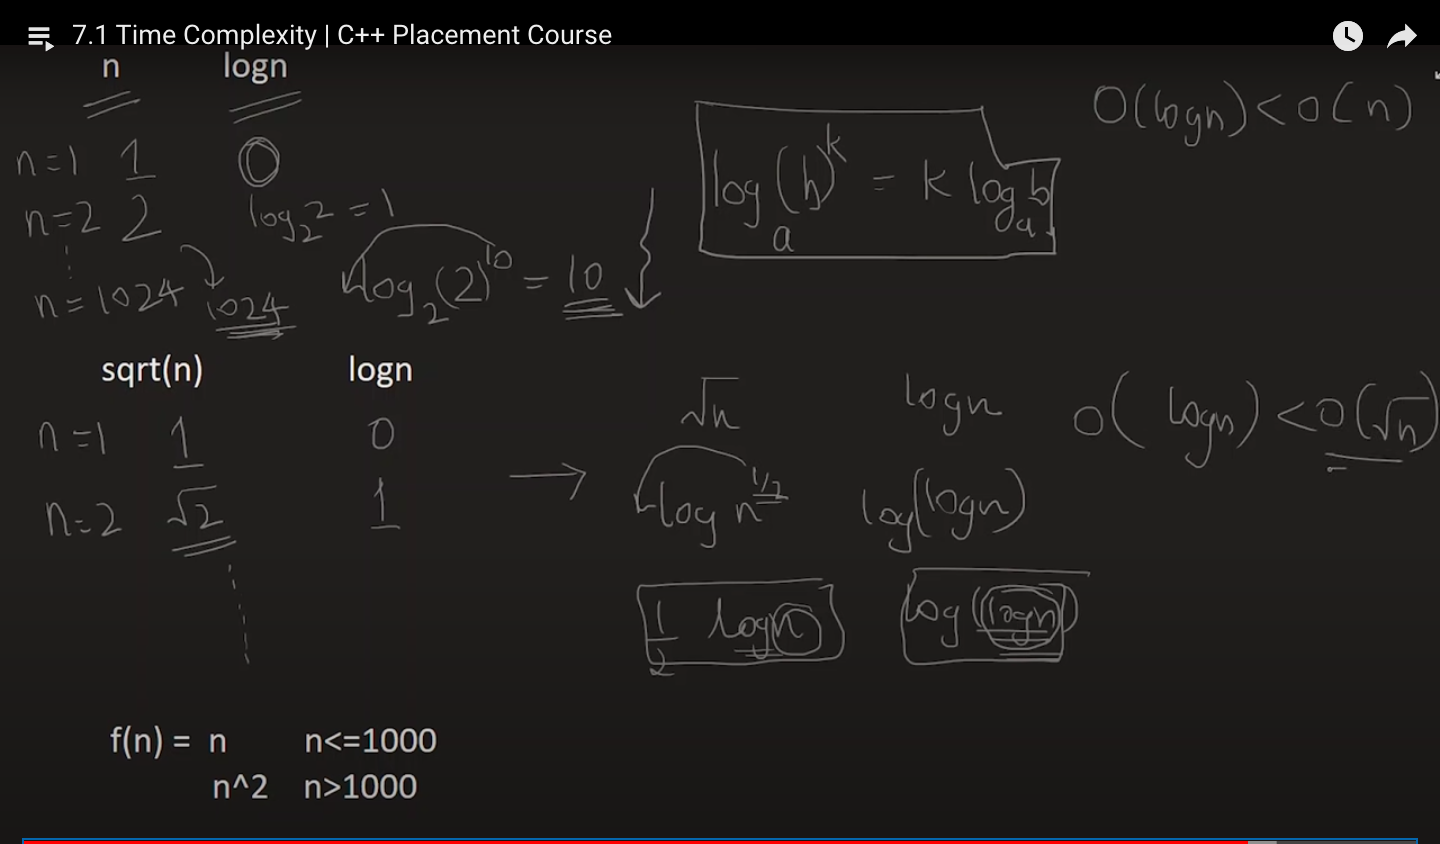 7.1 Time Complexity | C++ Placement Course
n logn
O(logn) < O(n)
n=1 1 0
n=2 2 log₂2 = 1
n=1024 1024 log₂(2)¹⁰ = 10
logₐ(b)ᵏ = k logₐb
sqrt(n) logn
n=1 1 0
n=2 √2 1
√n logn O( logn) < O(√n)
log n^1/2 log(logn)
1/2 logn log(logn)
f(n) = n n<=1000
n^2 n>1000